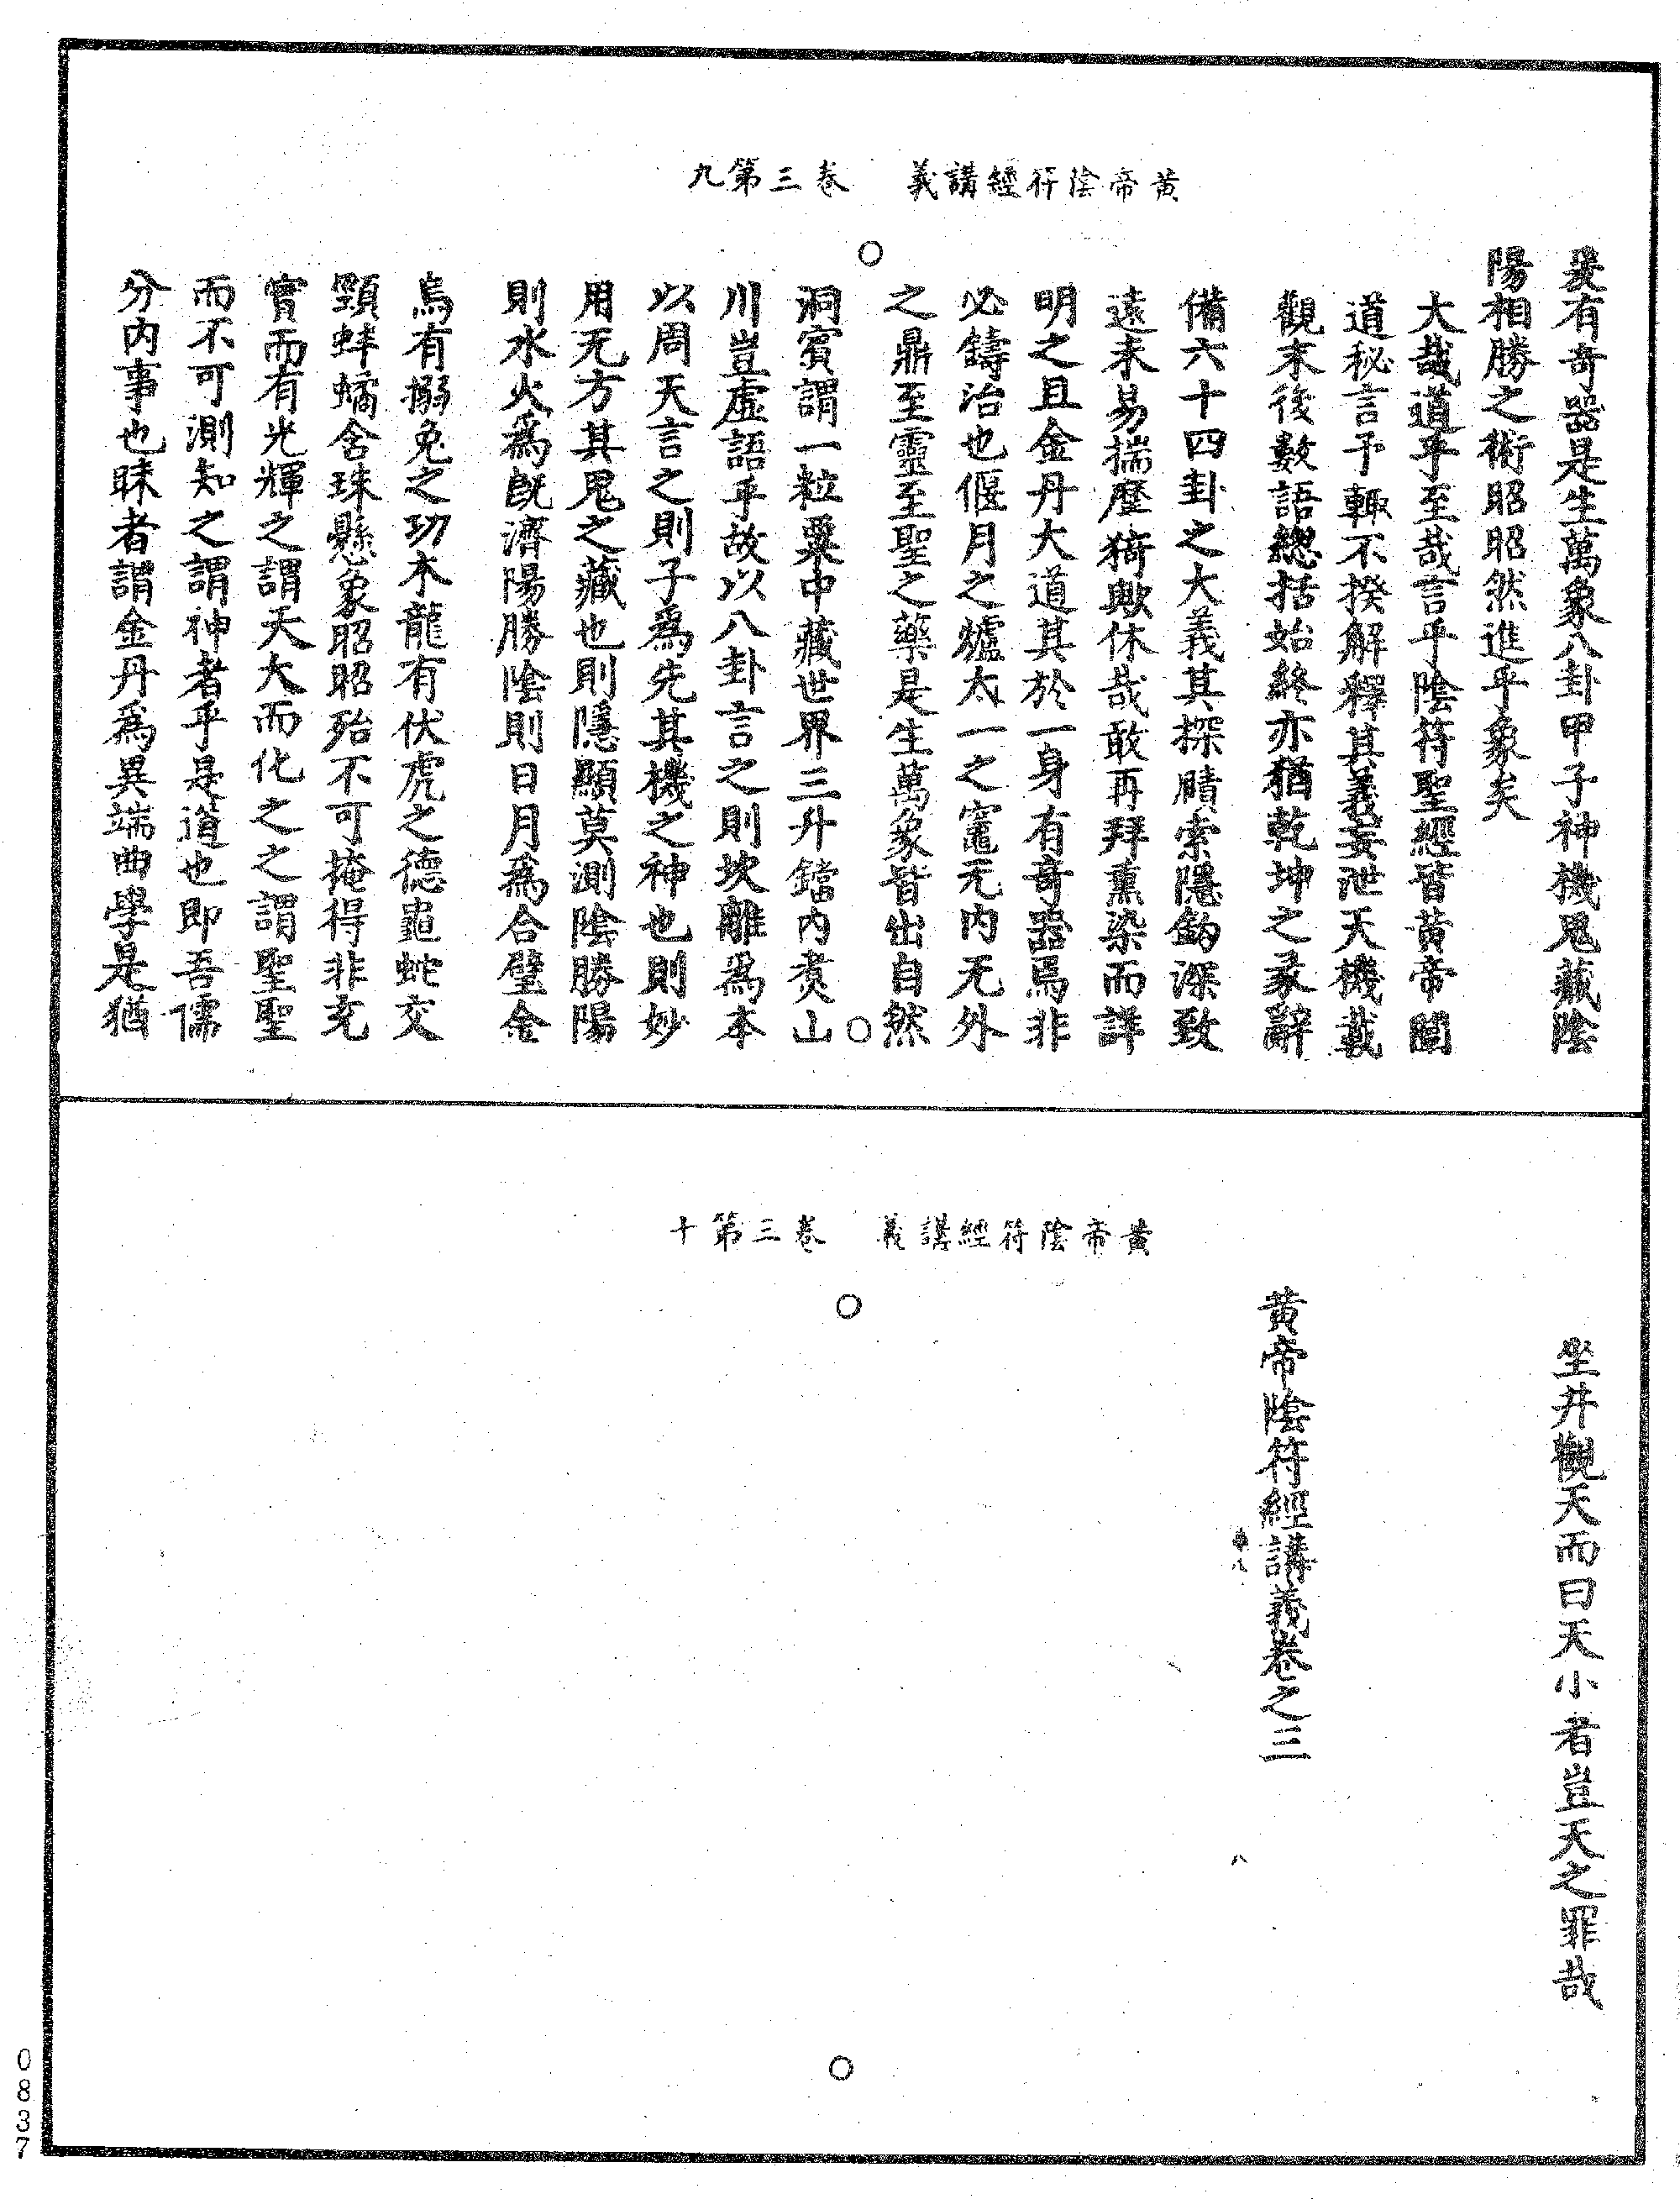 黃帝陰符經講義　卷三第九
爰有奇器是生萬象八卦甲子神機鬼藏陰
陽相勝之術昭昭然進乎象矣
大哉道乎至哉言乎陰符聖經皆黃帝闡
道秘言予輙不揆解釋其義妄泄天機載
觀末後數語總括始終亦猶乾坤之彖辭
備六十四卦之大義其探賾索隱鈎深致
遠未易揣歷猗歟休哉敢再拜熏染而詳
明之且金丹大道其於一身有奇器焉非
必鑄冶也偃月之爐太一之竈无内无外
之鼎至靈至聖之藥是生萬象皆出自然
洞賓謂一粒粟中藏世界三升鐺内煑山
川豈虛語乎故以八卦言之則坎離爲本
以周天言之則子爲先其機之神也則妙
用无方其鬼之藏也則隱顯莫測陰勝陽
則水火爲旣濟陽勝陰則日月爲合璧金
烏有搦兔之功木龍有伏虎之德龜蛇交
頸蚌蟠含珠懸象昭昭殆不可掩得非充
實而有光輝之謂大大而化之之謂聖聖
而不可測知之謂神者乎是道也即吾儒
分内事也昧者謂金丹爲異端曲學是猶
黃帝陰符經講義　卷三第十
坐井觀天而曰天小者豈天之罪哉
黃帝陰符經講義卷之三
0837